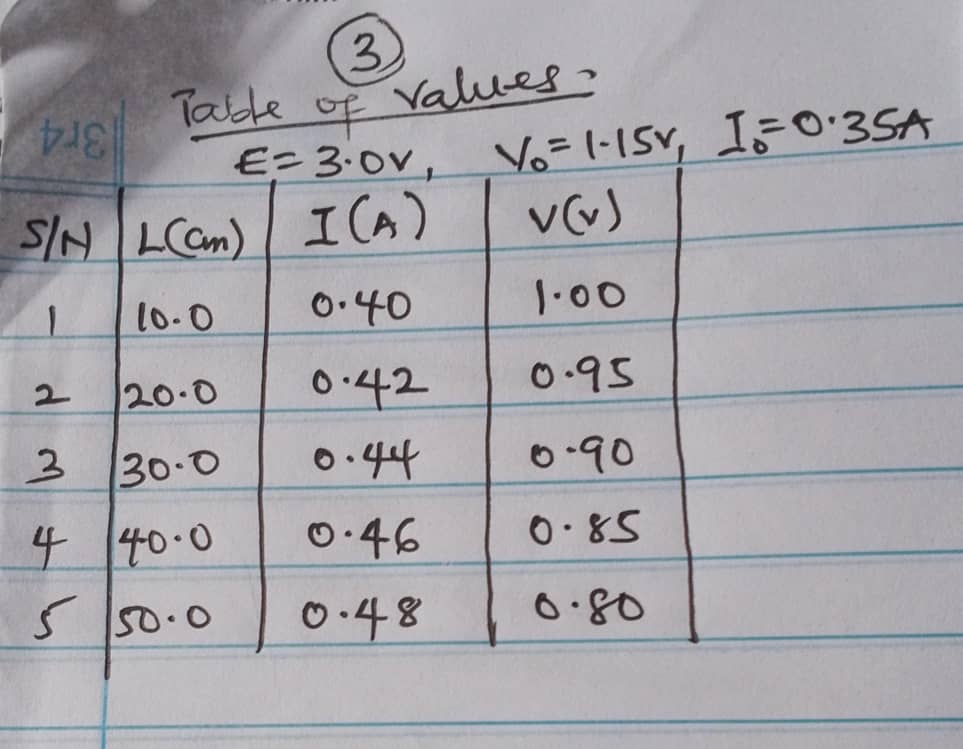 3
Table of values:
E = 3.0V, V₀ = 1.15V, I₀ = 0.35A
S/N L(cm) I(A) V(v)
1 10.0 0.40 1.00
2 20.0 0.42 0.95
3 30.0 0.44 0.90
4 40.0 0.46 0.85
5 50.0 0.48 0.80